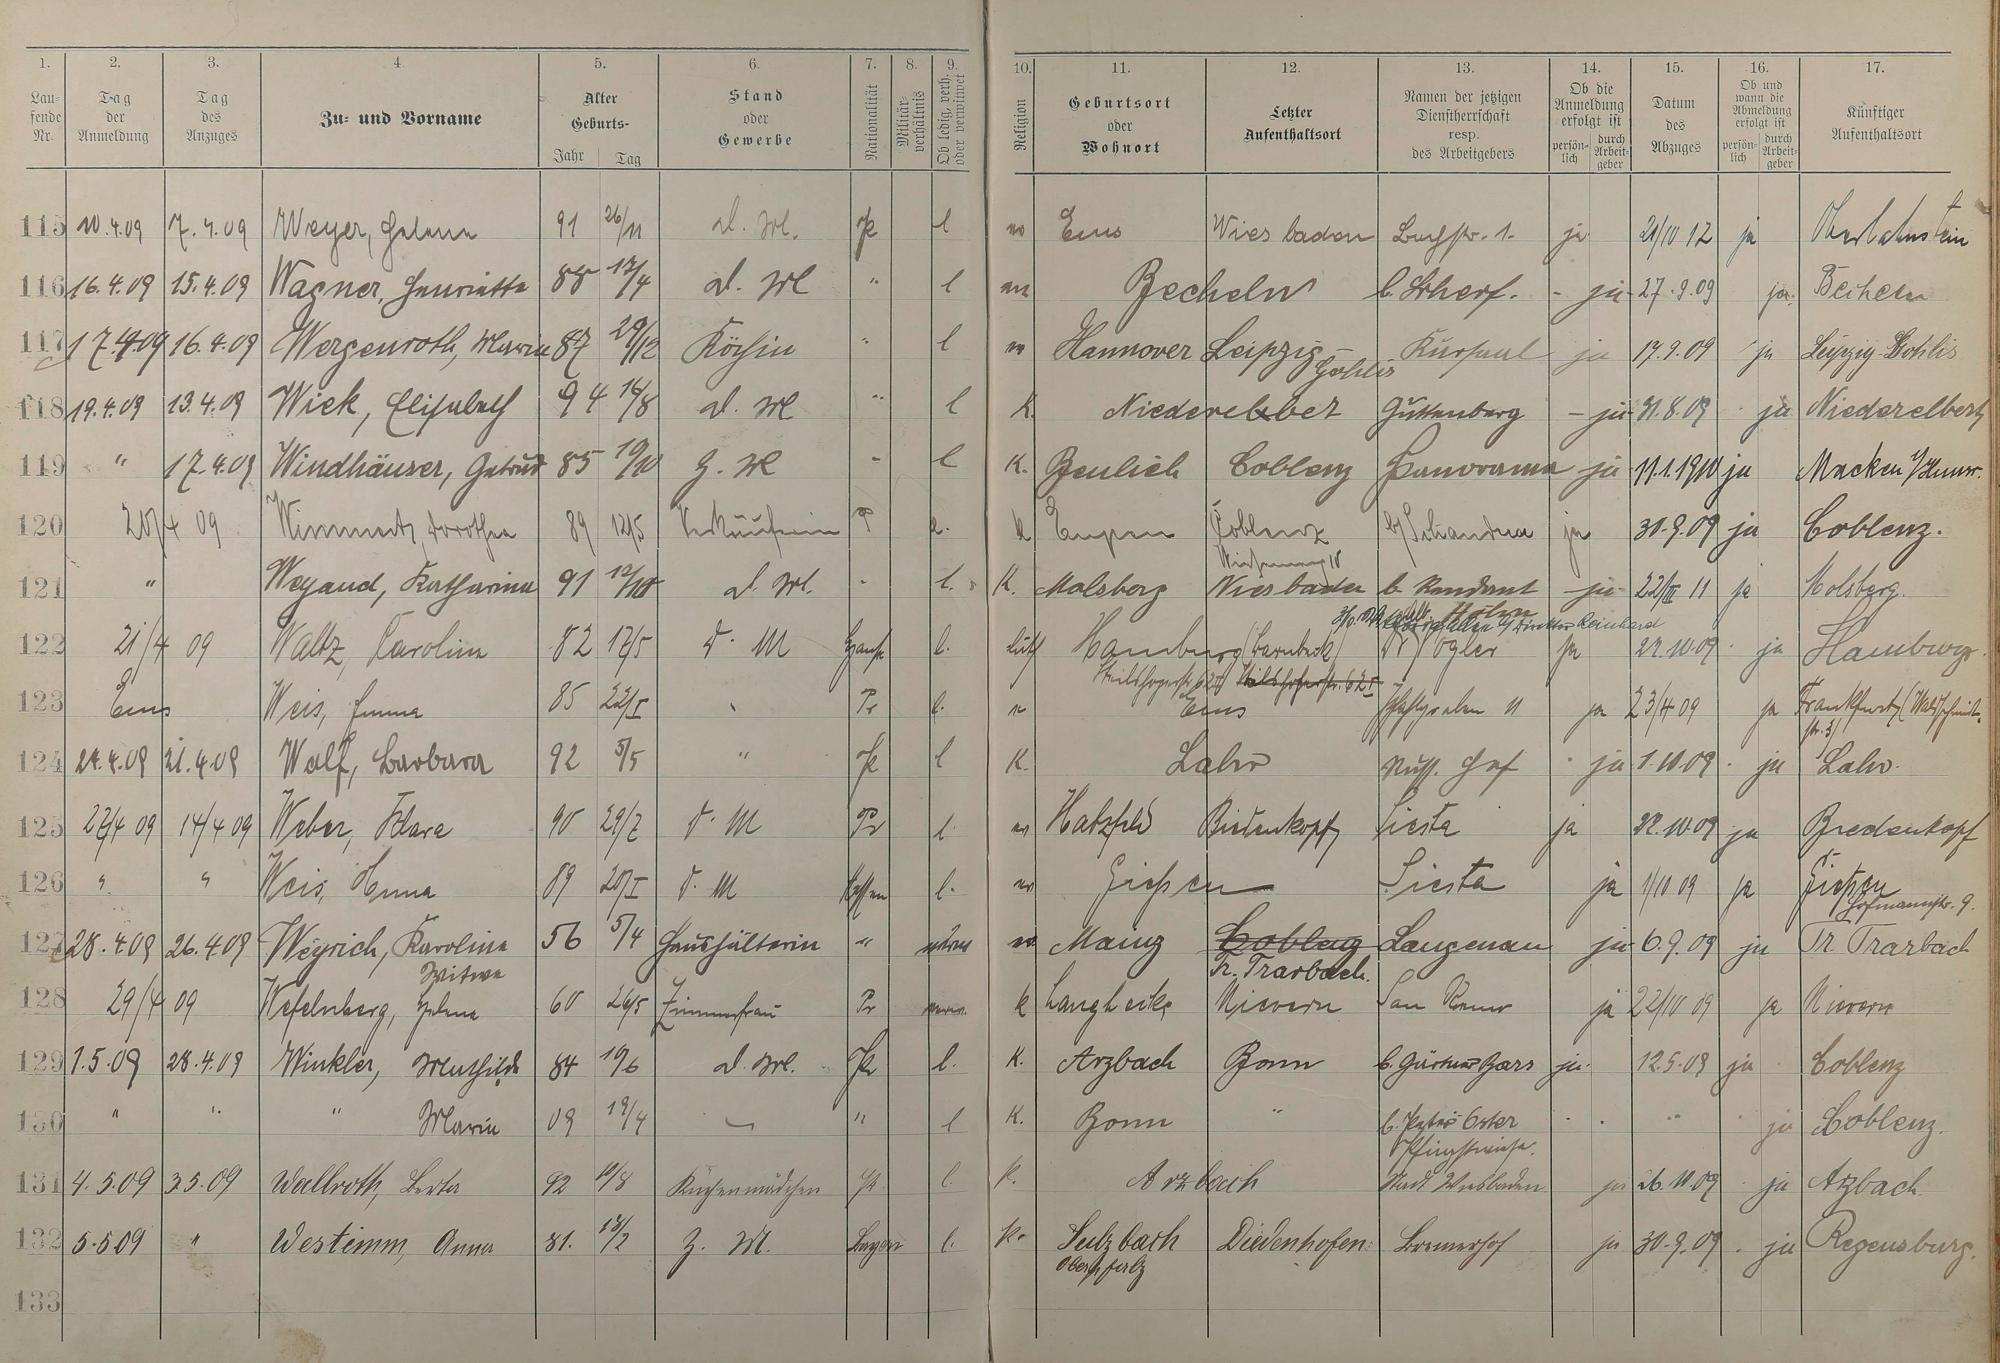 1. 2. 3. 4 5. 6. 7. 8. 9. 10. 11. 12. 13. 14. 15. 16. 17.
Lau-
fende
Nr.
Tag
der
Anmeldung
Tag
des
Anzuges
Zu- und Vorname
Alter
Geburts-
Jahr Tag
Stand
oder
Gewerbe
Nationalität
Militär-
verhältnis
Ob ledig, verh.
oder verwitwet
Religion
Geburtsort
oder
Wohnort
Letzter
Aufenthaltsort
Namen der jetzigen
Dienstherrschaft
resp.
des Arbeitgebers
Ob die
Anmeldung
erfolgt ist
persön-
lich
durch
Arbeit-
geber
Datum
des
Abzuges
Ob und
wann die
Abmeldung
erfolgt ist
persön-
lich
durch
Arbeit-
geber
Künftiger
Aufenthaltsort
115 10.4.09 7.4.09 Weyer, Helene 91 26/11 d. Ml. l Ems Wiesbaden ja 21/10 12 ja Oberlahnstein
116 16.4.09 15.4.09 Wagner, Henriette 88 17/4 d. Ml " l Becheln - ja 27.9.09 ja. Becheln
117 17.4.09 16.4.09 Wergenroth, Marie 87 29/12 Köchin " l Hannover Leipzig- Kursaal ja 17.9.09 ja Leipzig-Gohlis
Gohlis
118 19.4.09 13.4.09 Wick, Elisabeth 94 14/8 d. Ml " l K. Niederelbert Guttenberg - ja 31.8.09 ja Niederelbert
119 " 17.4.09 Windhäuser, Gertrud 85 10/10 Z. Ml " l K. Beulich Coblenz Panorama ja 11.1.1910 ja Macken
120 20/4 09 Dorothea 89 12/5 Verkäuferin P l. k Eupen Coblenz ja 30.9.09 ja Coblenz.
121 " Weyand, Katharina 91 12/10 d. Ml. " l. K. Molsberg Wiesbaden b. Rendant ja 22/III 11 ja Molsberg.
122 21/4 09 Waltz, Caroline 82 12/5 d. M l. luth Hamburg (Barmbeck) Dr Vogler ja 22.10.09 ja Hamburg.
123 Ems Weis, Emma 85 22/I " Pr l. " Ems ja 23/4 09 ja Frankfurt (Waldschmidt-
str. 3)
124 24.4.09 21.4.09 Wolf, Barbara 92 5/5 " l K. Lahr Russ. Hof ja 1.10.09 ja Lahr.
125 22/4 09 14/4 09 Weber, Klara 90 29/7 d. M Pr l. Hatzfeld Biedenkopf Siesta ja 22.10.09 ja Biedenkopf
126 " " Weis, Anna 89 20/I d. M Hessen l. Gießen Siesta ja 1/10 09 ja Gießen
Hofmannstr. 9.
127 28.4.09 26.4.09 Weyrich, Karoline 56 5/4 Haushälterin " Mainz Coblenz Langenau ja 6.9.09 ja Tr. Trarbach
Witwe Tr. Trarbach.
128 29/4 09 60 26/5 Zimmerfrau Pr k Langhecke Nievern San Remo ja 22/10 09 ja Nievern
129 1.5.09 28.4.09 Winkler, Mathilde 84 10/6 d. Ml. l. K. Arzbach Bonn ja. 12.5.09 ja Coblenz
130 " " " Maria 09 19/4 " l K. Bonn " b. Peter Oster ja Coblenz.
Pfingstwiese.
131 4.5.09 3.5.09 Wallroth, Berta 92 10/8 Küchenmädchen l. K. Arzbach Stadt Wiesbaden ja 26.10.09 ja Arzbach.
132 5.5.09 " Westimm, Anna 81. 13/2 Z. Ml. Bayern l. K. Sulzbach Diedenhofen Bremerhof ja 30.9.09 ja Regensburg.
Oberpfalz
133